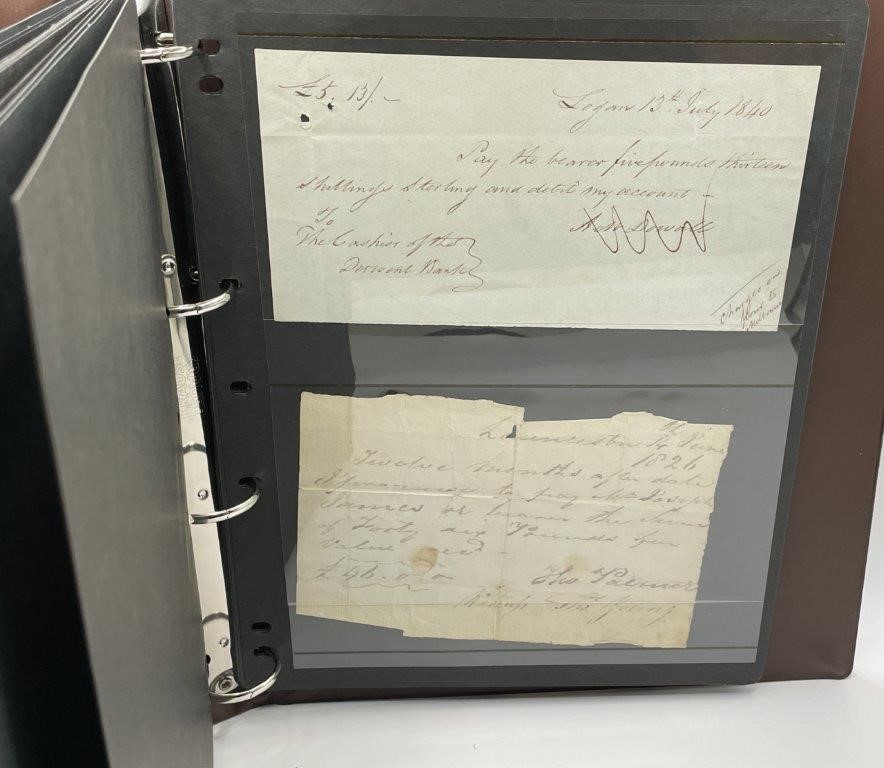 £5. 13/. -
Logan 13th July 1840
Pay the bearer five pounds thirteen
shillings Sterling and debit my account -
To
The Cashier of the
Derwent Bank
Charges on
to
Launceston 14th June
1826
Twelve months after date
I promise to pay Mr Joseph
James or bearer the Sum
of Forty six Pounds for
Value
£46.0.0
Thos Palmer
Witness Thos Young